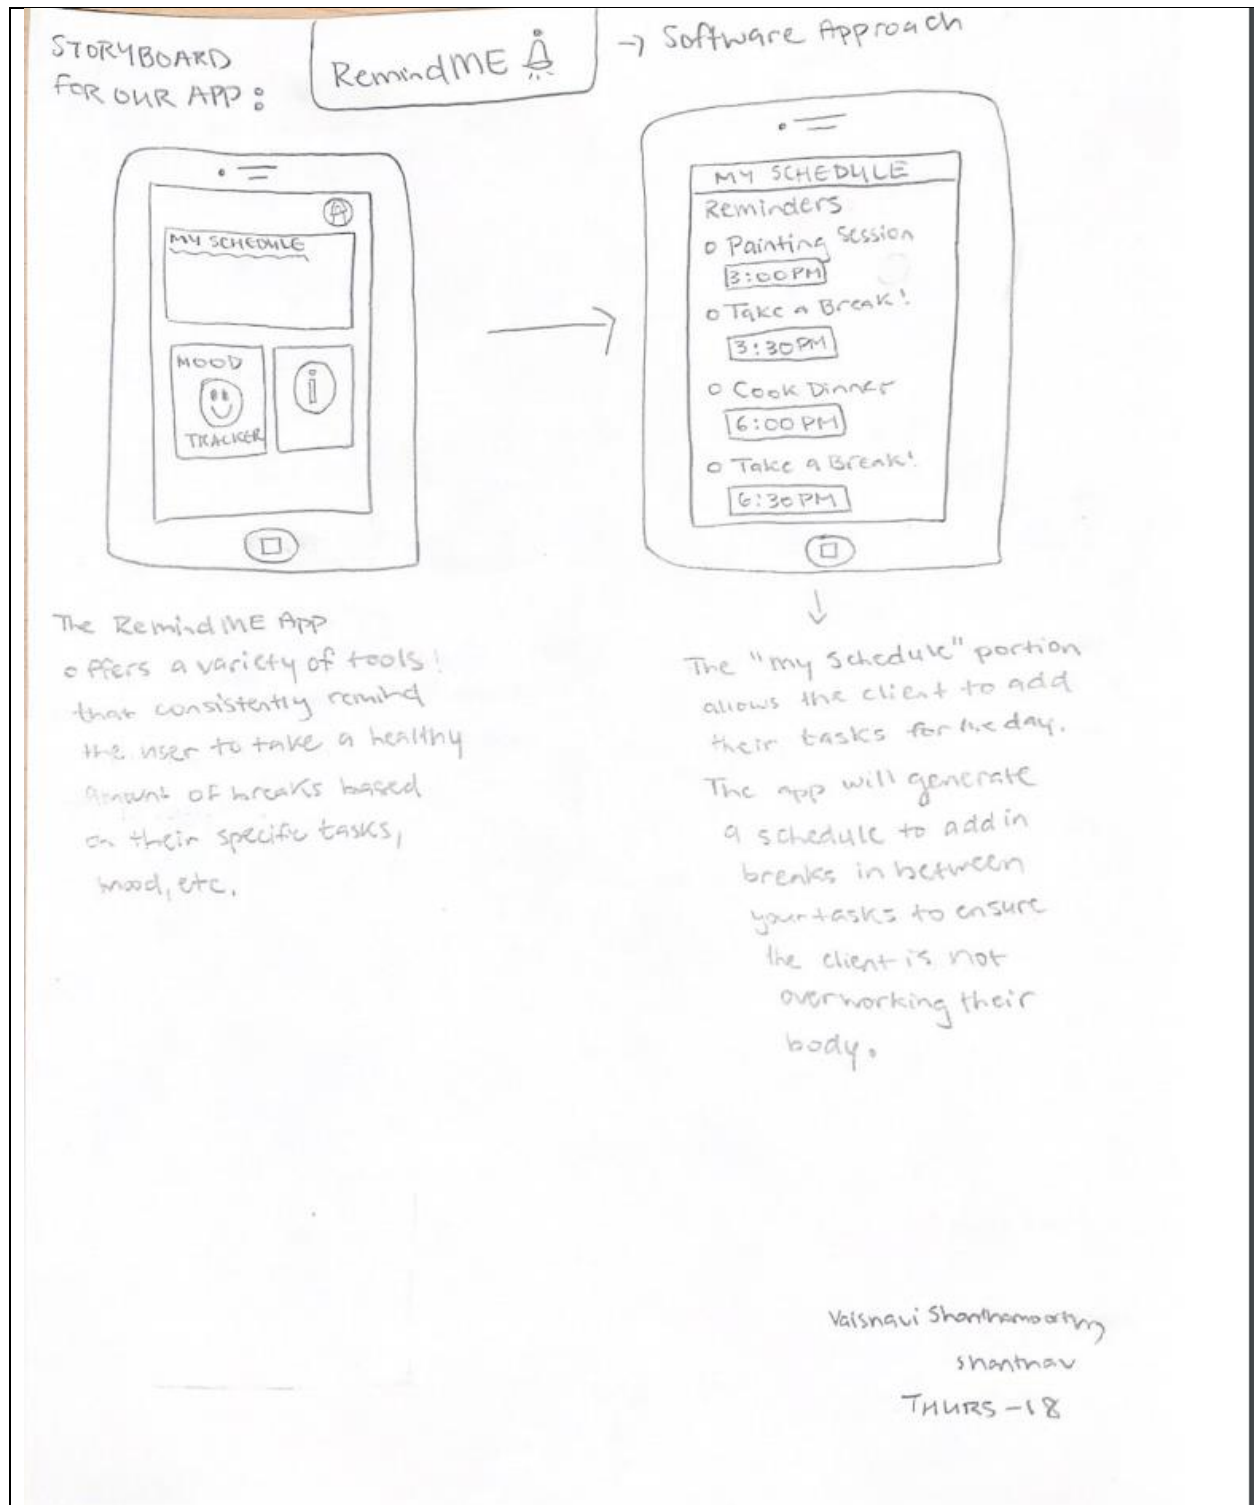 STORYBOARD
FOR OUR APP:
RemindME
→ Software Approach
MY SCHEDULE
MOOD
TRACKER
i
MY SCHEDULE
Reminders
o Painting Session
3:00PM
o Take a Break!
3:30PM
o Cook Dinner
6:00PM
o Take a Break!
6:30PM
The RemindME App
offers a variety of tools!
that consistently remind
the user to take a healthy
Amount of breaks based
on their specific tasks,
mood, etc.
The "my schedule" portion
allows the client to add
their tasks for the day.
The app will generate
a schedule to add in
breaks in between
your tasks to ensure
the client is not
overworking their
body.
Vaisnavi Shanthamoorthy
shanthav
THURS-18